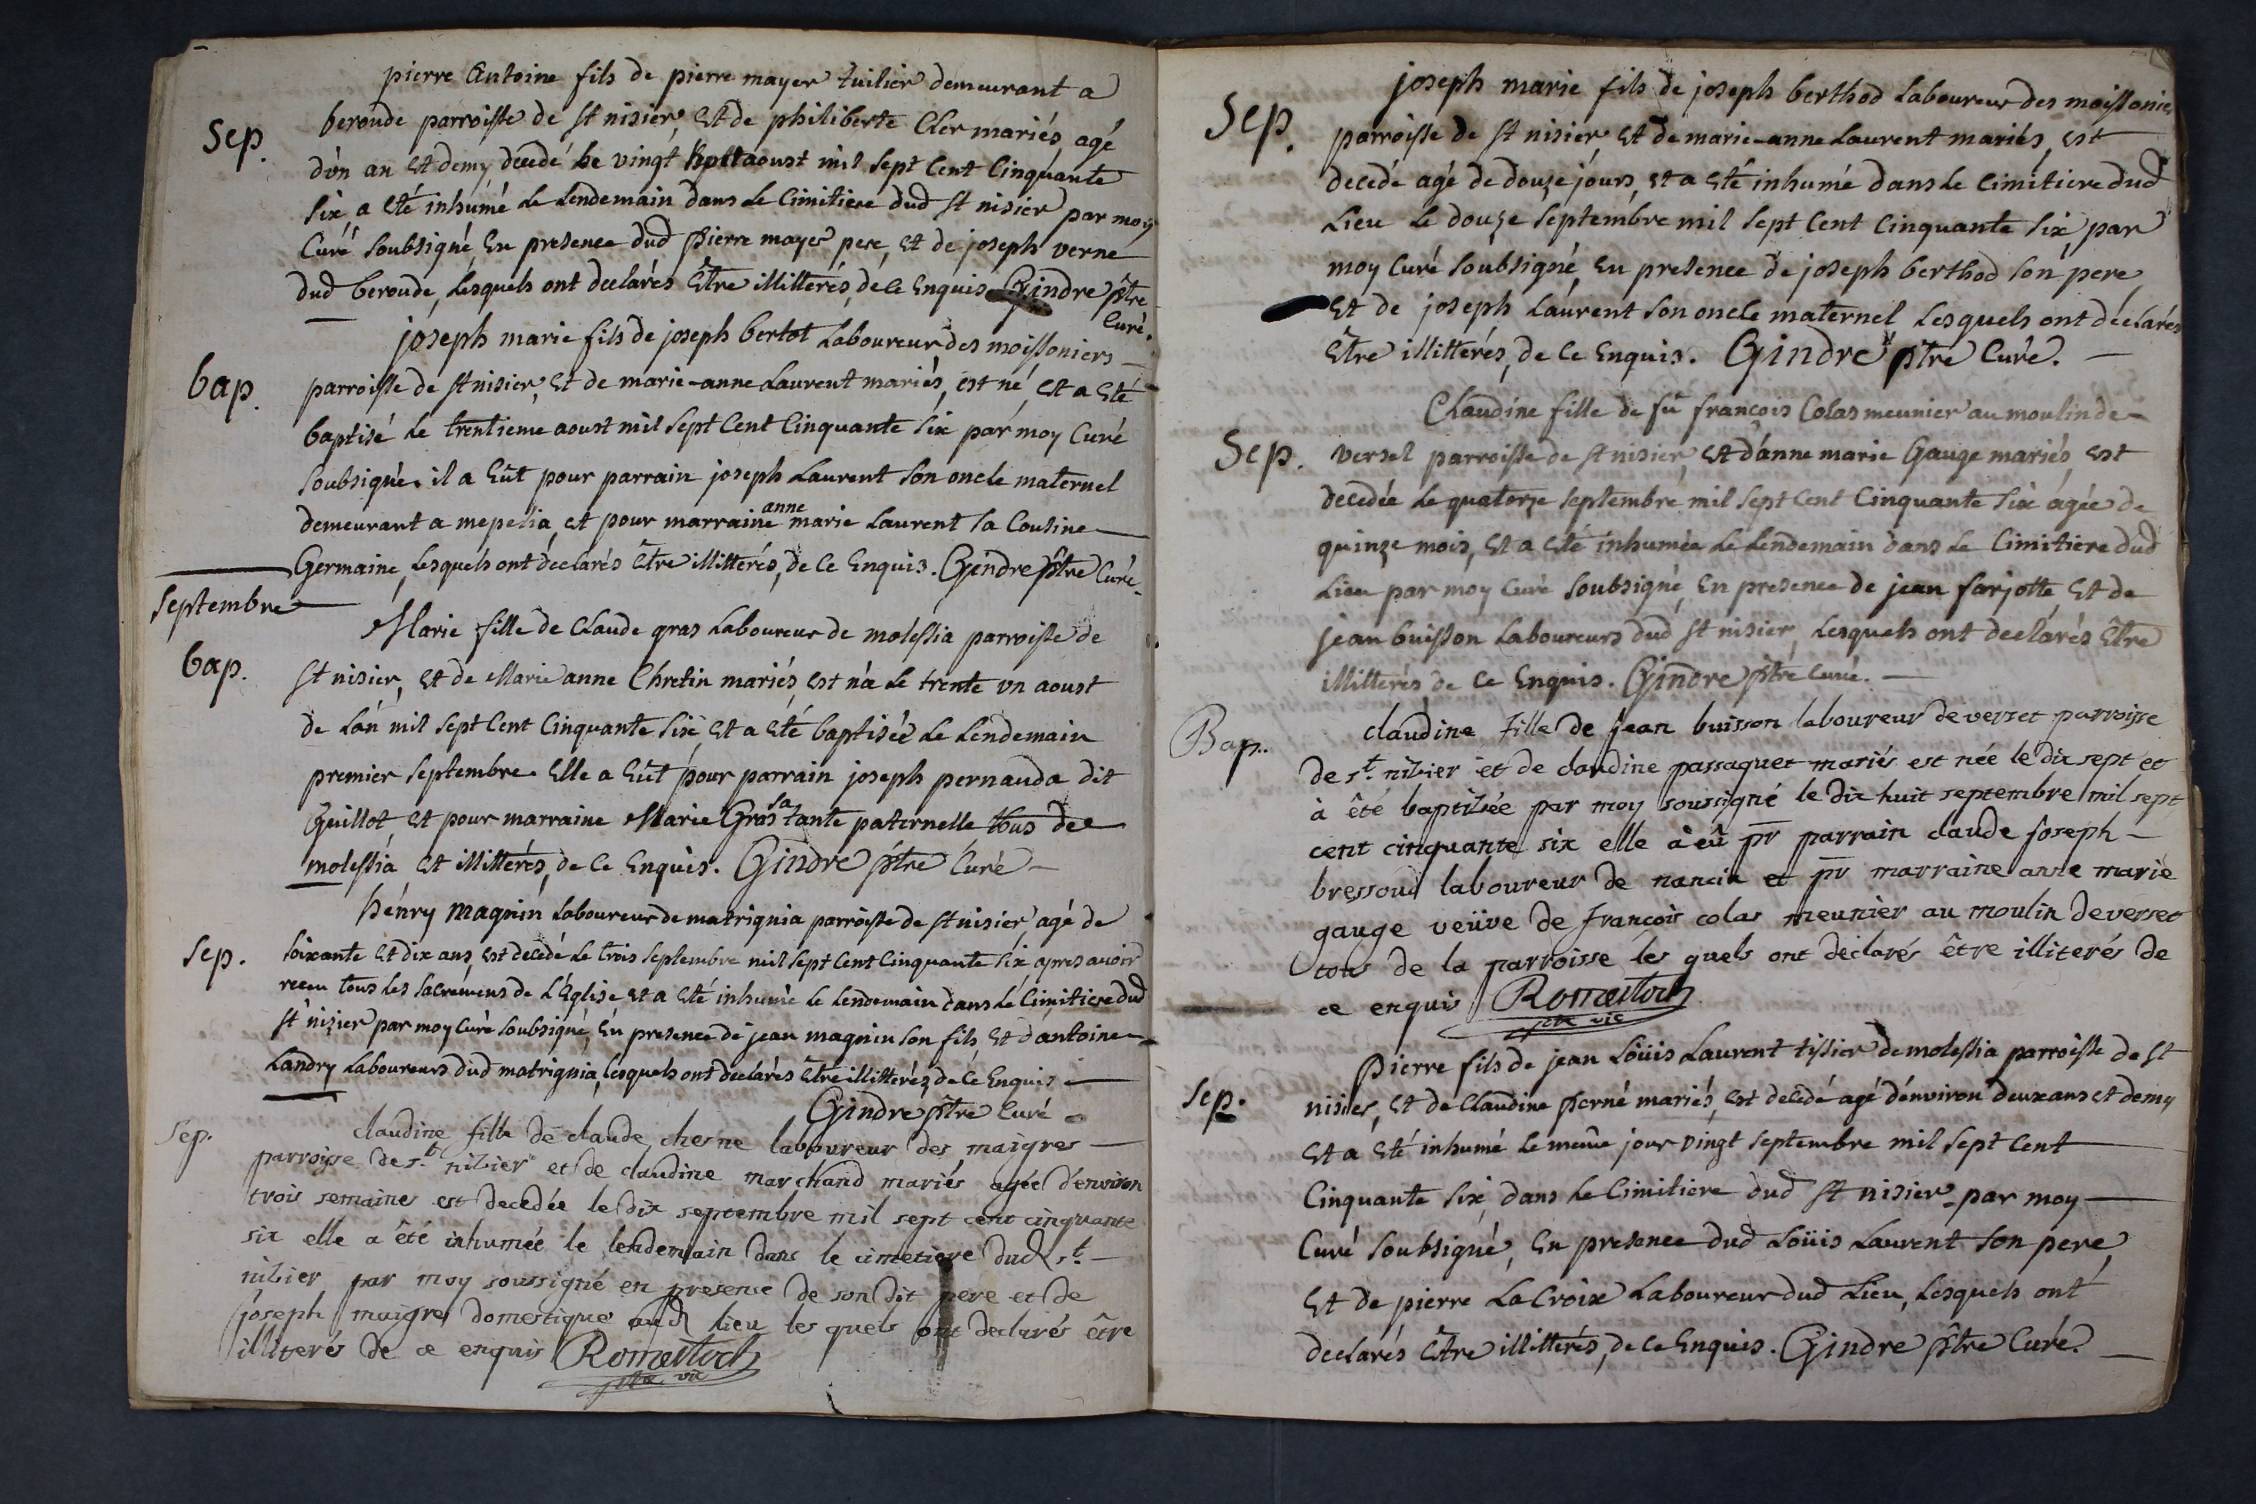 pierre Antoine fils de pierre mayer tuilier demeurant a
Sep. beroude parroisse de st nisier, et de philiberte Cler mariés, agé
d'ún an et demy decedé le vingt sept aoust mil sept Cent Cinquante
six a eté inhúmé le lendemain dans le Cimitiere dud st nisier par moy
Curé soubsigné, En presence dud pierre mayer pere, et de joseph verne
dud beroude, lesquels ont declarés Être illitterés, de ce Enquis. Gindre ptre
Curé.
joseph marie fils de joseph bertot Laboureur des moissoniers
bap. parroisse de st nisier, et de marie-anne Laurent mariés, est né, et a eté
baptisé le trentieme aoust mil sept Cent Cinquante six par moy Curé
soubsigné. il a Eût pour parrain joseph Laurent son oncle maternel
demeurant a mepelia, et pour marraine anne marie Laurent sa Cousine
Germaine, lesquels ont declarés Être illitterés, de ce Enquis. Gindre ptre Curé.
septembre
Marie fille de Claude gras Laboureur de molessia parroisse de
bap. st nisier, et de Marie anne Chretin mariés est nà le trente vn aoust
de Lán mil sept Cent Cinquante six, et a eté baptisée le lendemain
premier septembre. Elle a Eût pour parrain joseph pernauda dit
Guillot, et pour marraine Marie Gras sa tante paternelle tous de
molessia et illitterés, de ce Enquis. Gindre ptre Curé
hénry magnin Laboureur de matrignia parroisse de st nisier, agé de
Sep. soixante et dix ans, est decedé le trois septembre mil sept Cent Cinquante six apres avoir
receu tous les sacremens de L'Église et a eté inhumé le lendemain dans le Cimitiere dud
st nizier par moy Curé soubsigné, En presence de jean magnin son fils, et d'antoine
Landry Laboureurs dud matrignia, lesquels ont declarés Être illitterés, de ce Enquis
Gindre ptre Curé
Sép. claudine fille de claude chesne laboureur des maigres
parroisse de st. nizier et de claudine marchand mariés agée d'environ
trois semaines est decedée le dix septembre mil sept cent cinquante
six elle a été inhumée le lendemain dans le cimetiere dud st.
nizier par moy soussigné en presence de son dit pere et de
joseph maigre domestique aud lieu les quels ont declarés être
illiterés de ce enquis Romestoch
ptre vic
joseph marie fils de joseph berthod Laboureur des moissonie
Sep. parroisse de st nisier, et de marie-anne Laurent mariés, est
decedé agé de douze jours, et a eté inhumé dans le Cimitiere dud
Lieu le douze septembre mil sept Cent Cinquante six, par
moy Curé soubsigné, En presence de joseph berthod son pere,
et de joseph Laurent son oncle maternel lesquels ont declarés
Être illitterés, de ce Enquis. Gindre ptre Curé.
Claudine fille de fû françois Colas meunier au moulin de
Sep. versel parroisse de st nisier, et d'anne marie Gauge mariés, est
decedée le quatorze septembre mil sept Cent Cinquante six agée de
quinze mois, et a eté inhumée le lendemain dans le Cimitiere dud
Lieu par moy Curé soubsigné, En presence de jean farjotte et de
jean buisson Laboureurs dud st nisier, lesquels ont declarés Être
illitterés de ce Enquis. Gindre ptre Curé.
Bap. claudine fille de jean buisson laboureur de verset parroisse
de st. nizier et de claudine passaquet mariés est née le dix sept et
à été baptisée par moy soussigné le dix huit septembre mil sept
cent cinquante six elle à eû pr parrain claude joseph
bressoud laboureur de nancia et pr marraine anne marie
gauge veüve de francois colas meunier au moulin de verset
tous de la parroisse les quels ont declarés être illiterés de
ce enquis Romestoch
ptre vic
Pierre fils de jean Loüis Laurent tissier de molessia parroisse de st
Sep. nisier, et de Claudine perné mariés, est decedé agé d'énviron deux ans et demy
et a eté inhumé le même jour vingt septembre mil sept Cent
Cinquante six, dans le Cimitiere dud st nisier par moy
Curé soubsigné, En presence dud Loüis Laurent son pere,
et de pierre La Croix Laboureur dud Lieu, lesquels ont
declarés Être illitterés, de ce Enquis. Gindre ptre Curé.